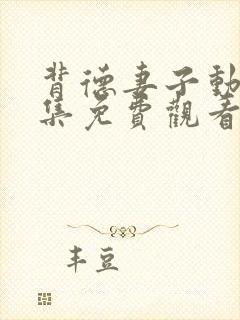 背德妻子動
集免費觀看
丰豆